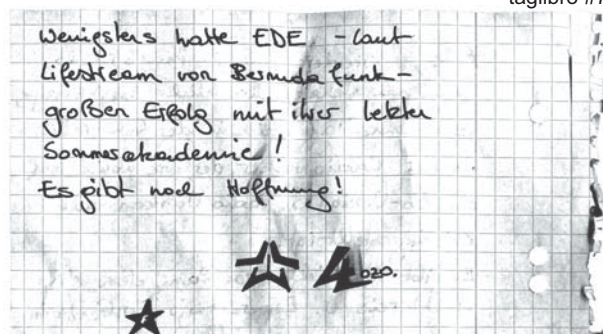 Wenigstens hatte EDE - laut
Lifestream von Bermuda funk -
großen Erfolg mit ihrer letzten
Sommerakademie!
Es gibt noch Hoffnung!
4 020.